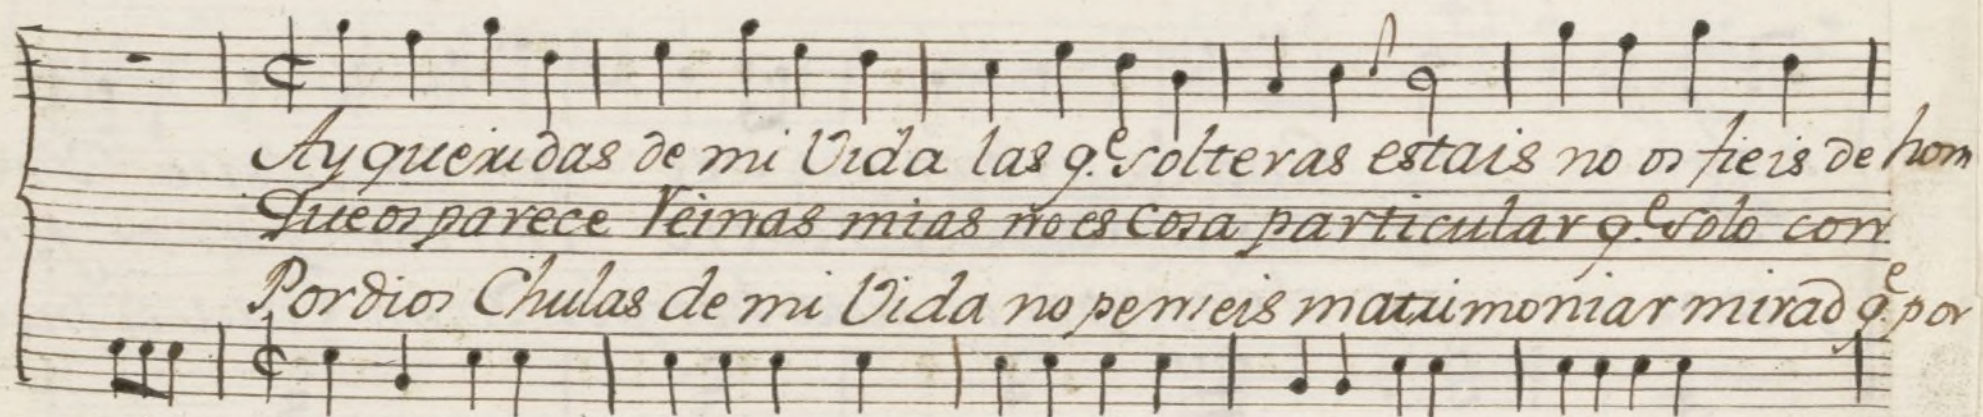 Ay queridas de mi Vida las q.e solteras estais no os fieis de hom
Que os parece Reinas mias no es cosa particular q.e solo con
Por dios Chulas de mi Vida no penseis matrimoniar mirad q.e por